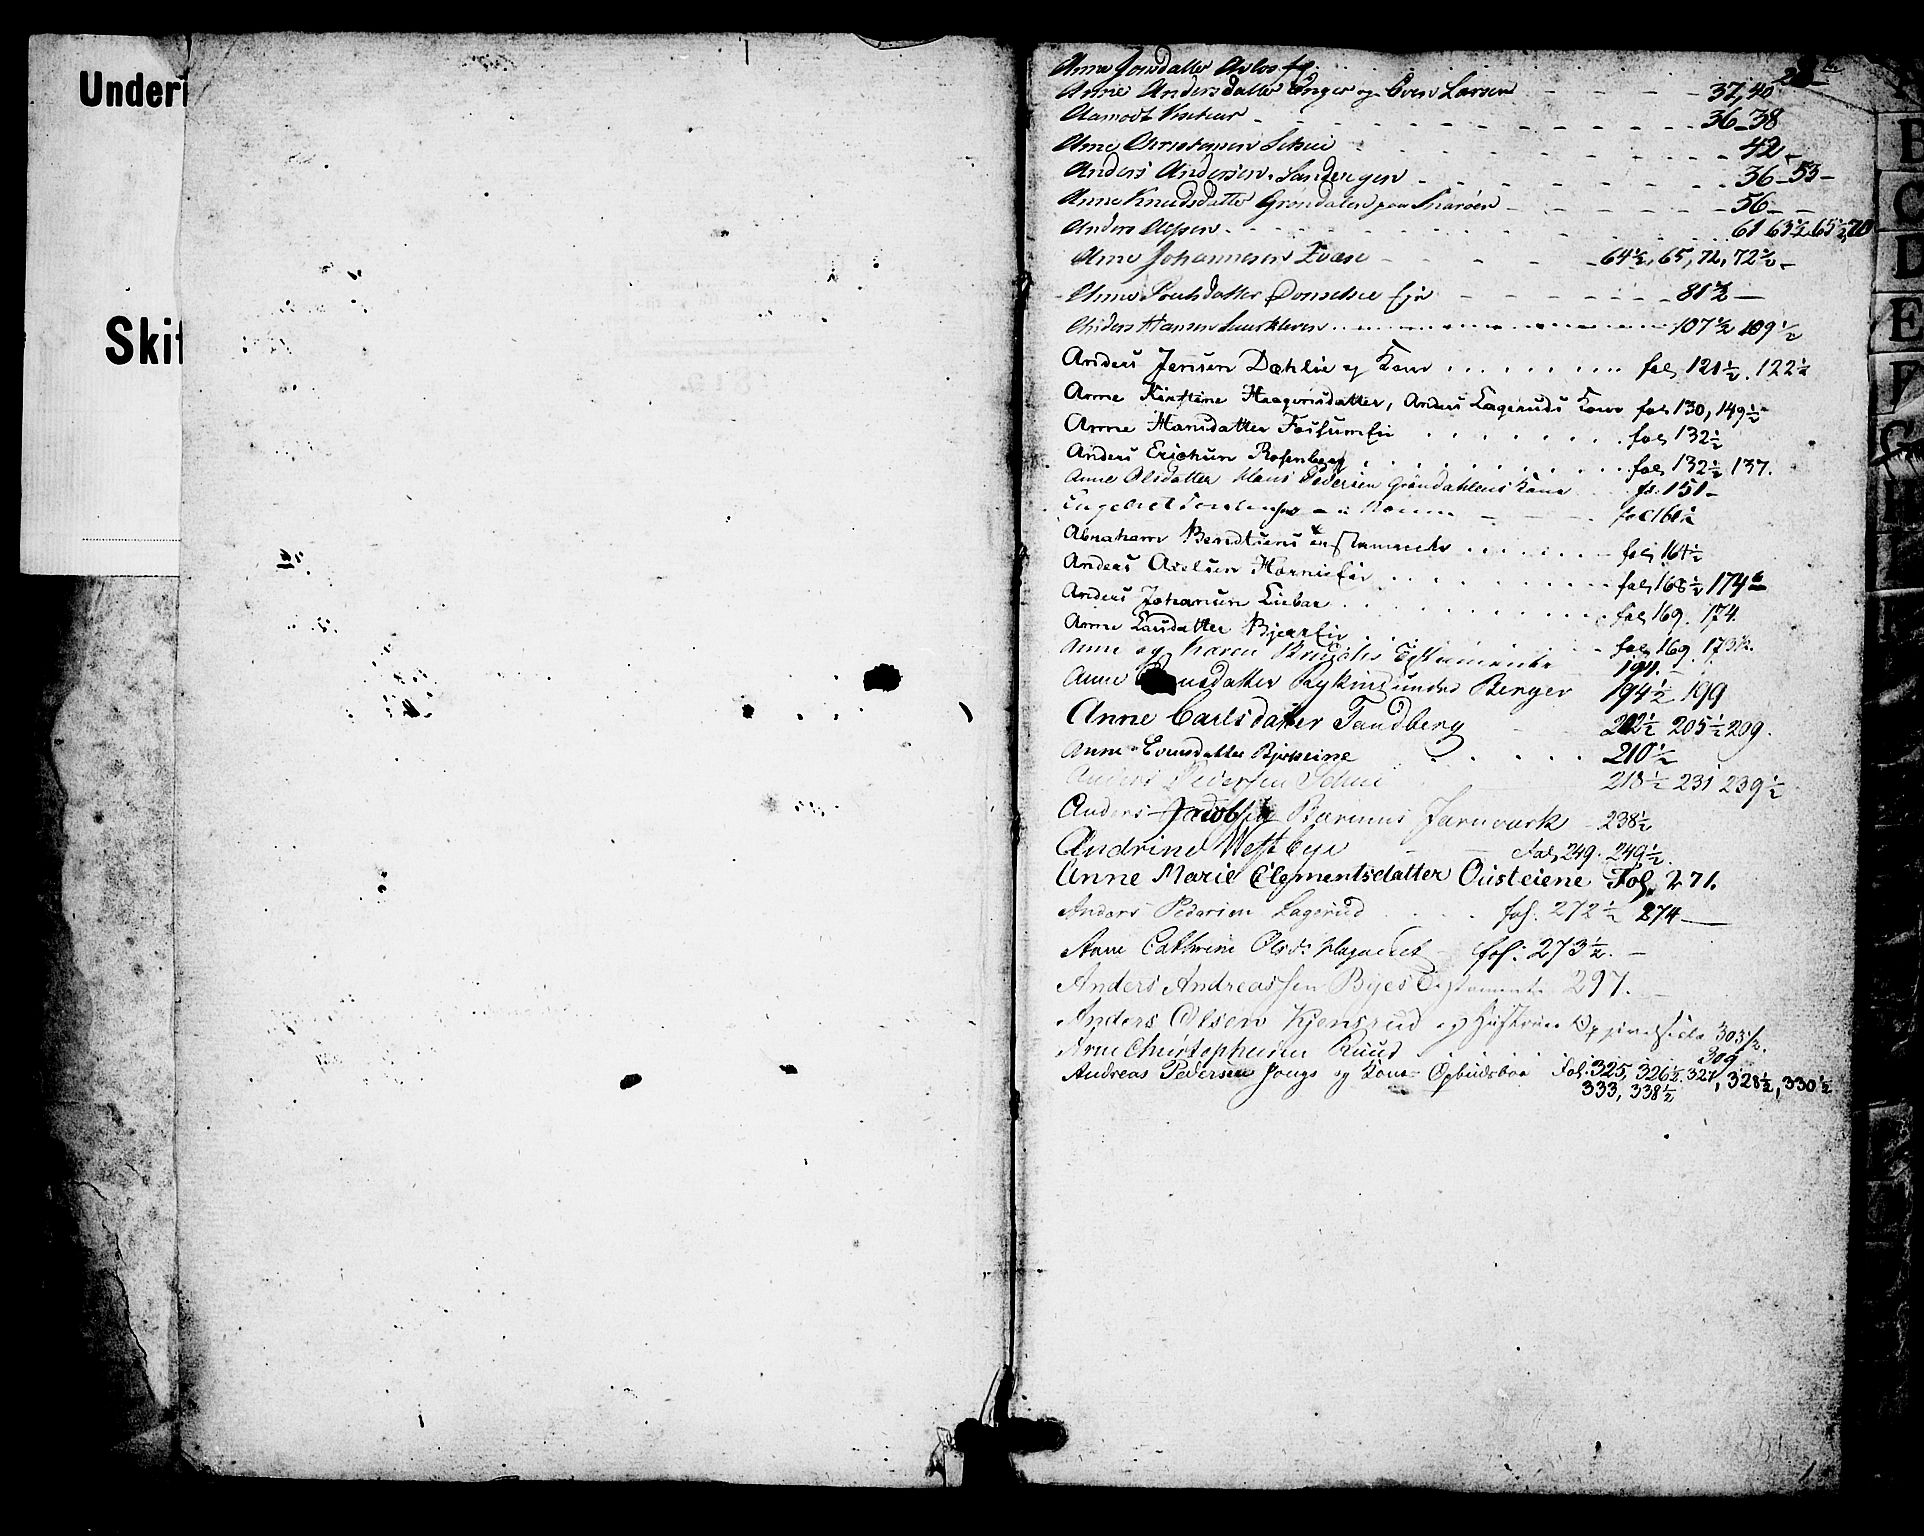 Underi
Skif
Anne Jonsdatter 28
Anne Andersdatter Unger og Even Larsen 37, 40
Aamodt 36-38
Arne Christensen Schui 42
Anders Andersen Sandengen 36-53-
Anne Knudsdatter Grøndalen paa Snarøen 56
Anders Alfsen 61 63½ 65½, 70
Arne Johannesen Evæie 64½, 65, 72, 72½
Anne Poulsdatter Eje 81½
Anders Hansen 107½ 109½
Anders Jensen Dæhlie og Kone fol 121½. 122½
Anne Kirstine Haagensdatter, Anders Lageruds Kone fol 130, 149½
Anne Hansdatter Fossum Eie fol 132½
Anders Erichsen Rosenberg fol 132½ 137.
Anne Olsdatter Hans Pedersen Grøndahlens Kone fo. 151-
Engebret fol 161½
Abraham Berndtsens fol 164½
Anders Axelsen Hornieie fol 168½ 174
Anders Johansen Liebae fol 169. 174
Anne Larsdatter Bjerkeie fol 169. 173½.
Anne og Karen Testamente 191.
Anne Rykind under Berger 194½ 199
Anne Carlsdatter Tandberg 202½ 205½ 209.
Anne Evensdatter 210½
Anders Pedersen Schui 218½ 231 239½
Anders Jacobsen Bærums Jærnværk 238½
Andrine Westbye Fol, 249. 249½.
Anne Marie Clementsdatter Ousteiene Fol. 271.
Anders Pedersen Lagerud fol. 272½ 274
Anne Cathrine Olsd: fol: 273½.
Anders Andreassen Byes Testamente 297.
Anders Olsen Kjensrud og Hustrues 303½.
Arne Christophersen Ruud 309
Andreas Pedersen Jongs og Kones Opbudsboe Fol: 325, 326½. 327, 328½, 330½
333, 338½
B
C
D
E
F
G
H
1